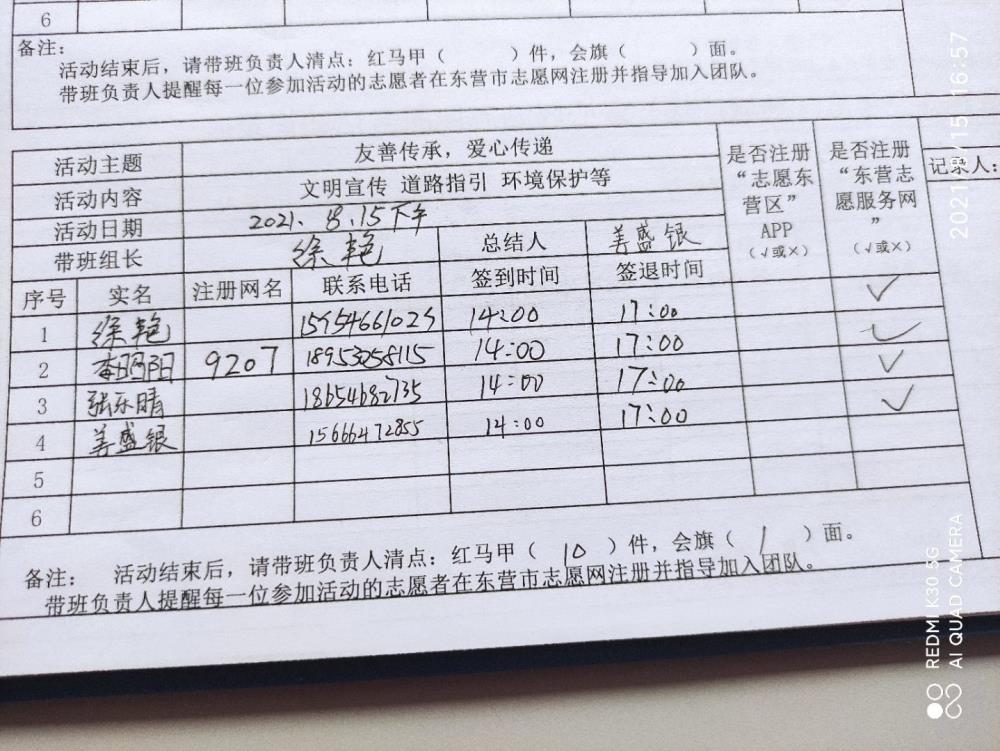 6
备注:
活动结束后，请带班负责人清点：红马甲（ ）件，会旗（ ）面。
带班负责人提醒每一位参加活动的志愿者在东营市志愿网注册并指导加入团队。
活动主题 友善传承，爱心传递 是否注册“志愿东营区”APP（√或×） 是否注册“东营志愿服务网”（√或×） 记录人:
活动内容 文明宣传 道路指引 环境保护等
活动日期 2021. 8.15下午
带班组长 徐艳 总结人 姜盛银
序号 实名 注册网名 联系电话 签到时间 签退时间
1 徐艳 14:00 17:00 ✓
2 李明阳 9207 18953258115 14:00 17:00 ✓
3 张乐晴 18654682735 14:00 17:00 ✓
4 姜盛银 15666472855 14:00 17:00 ✓
5
6
备注: 活动结束后，请带班负责人清点：红马甲（ 10 ）件，会旗（ 1 ）面。
带班负责人提醒每一位参加活动的志愿者在东营市志愿网注册并指导加入团队。
16:57
REDMI K30 5G
AI QUAD CAMERA